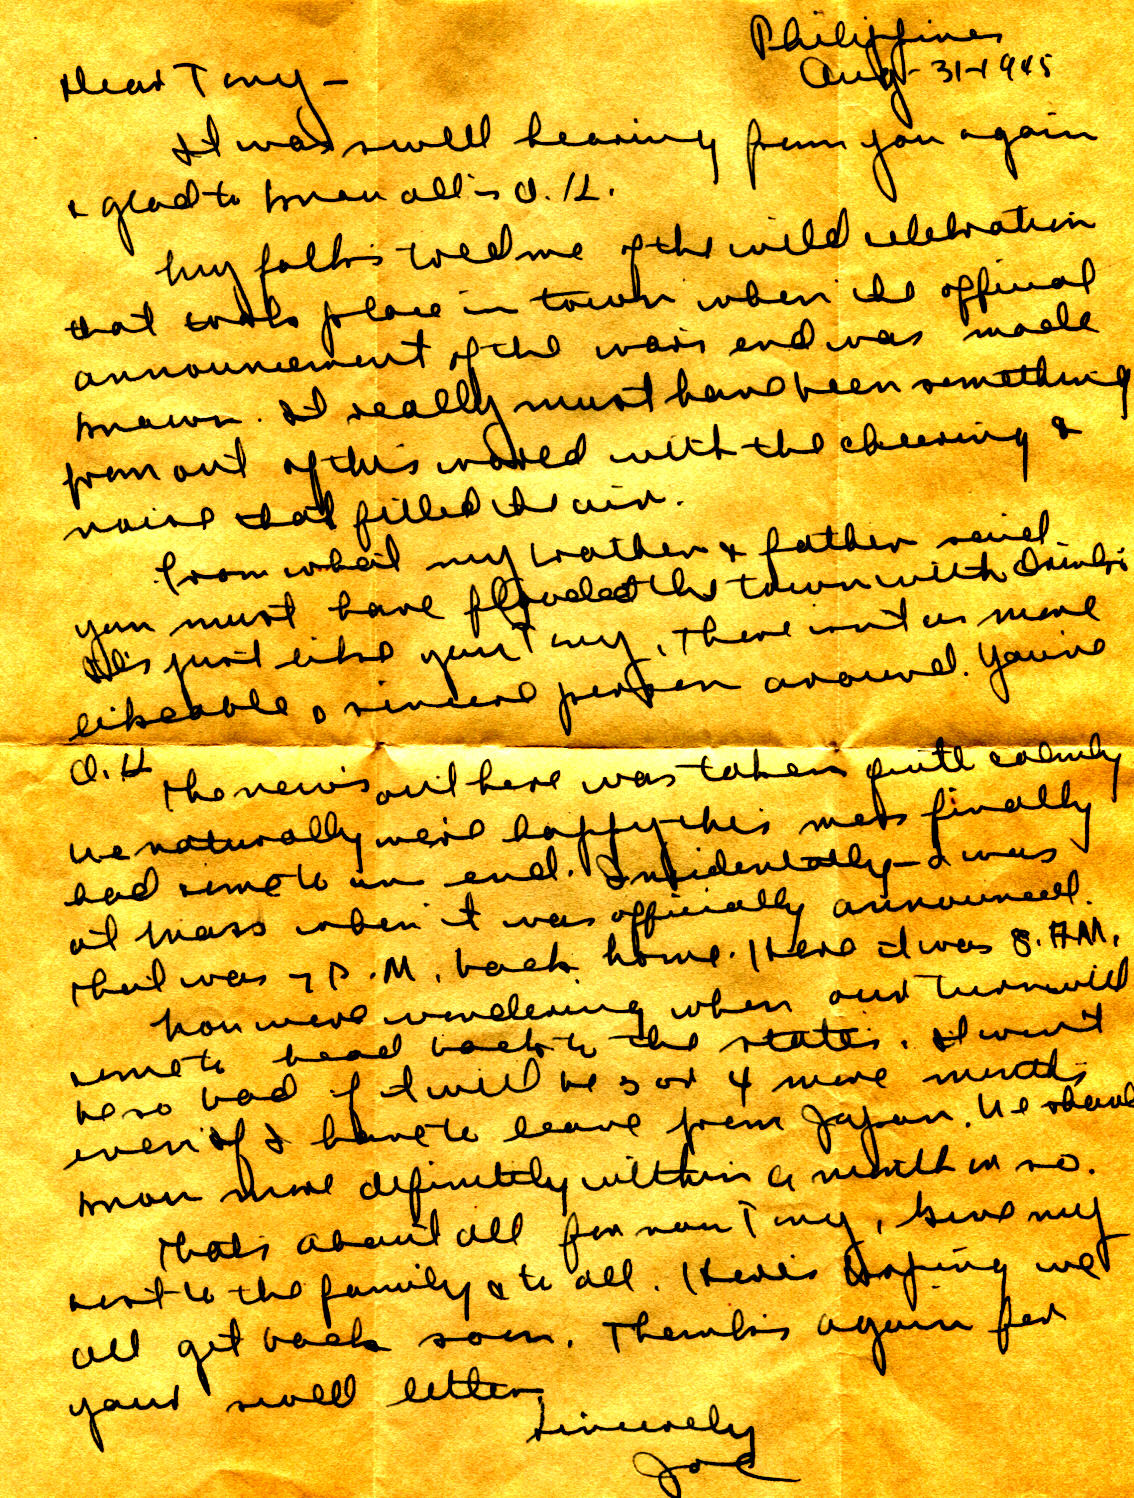 Philippines
Aug-31-1945
Dear Tony-
It was swell hearing from you again
& glad to know all's O.K.
My folks told me of the wild celebration
that took place in town when the official
announcement of the war's end was made
known. It really must have been something
from out of this world with the cheering &
noise that filled the air.
From what my brother & father said
you must have flooded the town with drinks
It's just like you Tony, There isn't a more
likeable, sincere person around. You're
O.K.
The news out here was taken quite calmly
We naturally were happy this mess finally
had come to an end. Incidentally-I was
at mass when it was officially announced.
That was 7 P.M. back home. Here it was 8.AM.
Now we're wondering when our turn will
come to head back to the states. It won't
be so bad if it will be 3 or 4 more months
even if I have to leave from Japan. We should
know more definitely within a month or so.
That's about all for now Tony, Give my
best to the family & to all. Here's hoping we
all get back soon. Thanks again for
your swell letter.
Sincerely
Joe